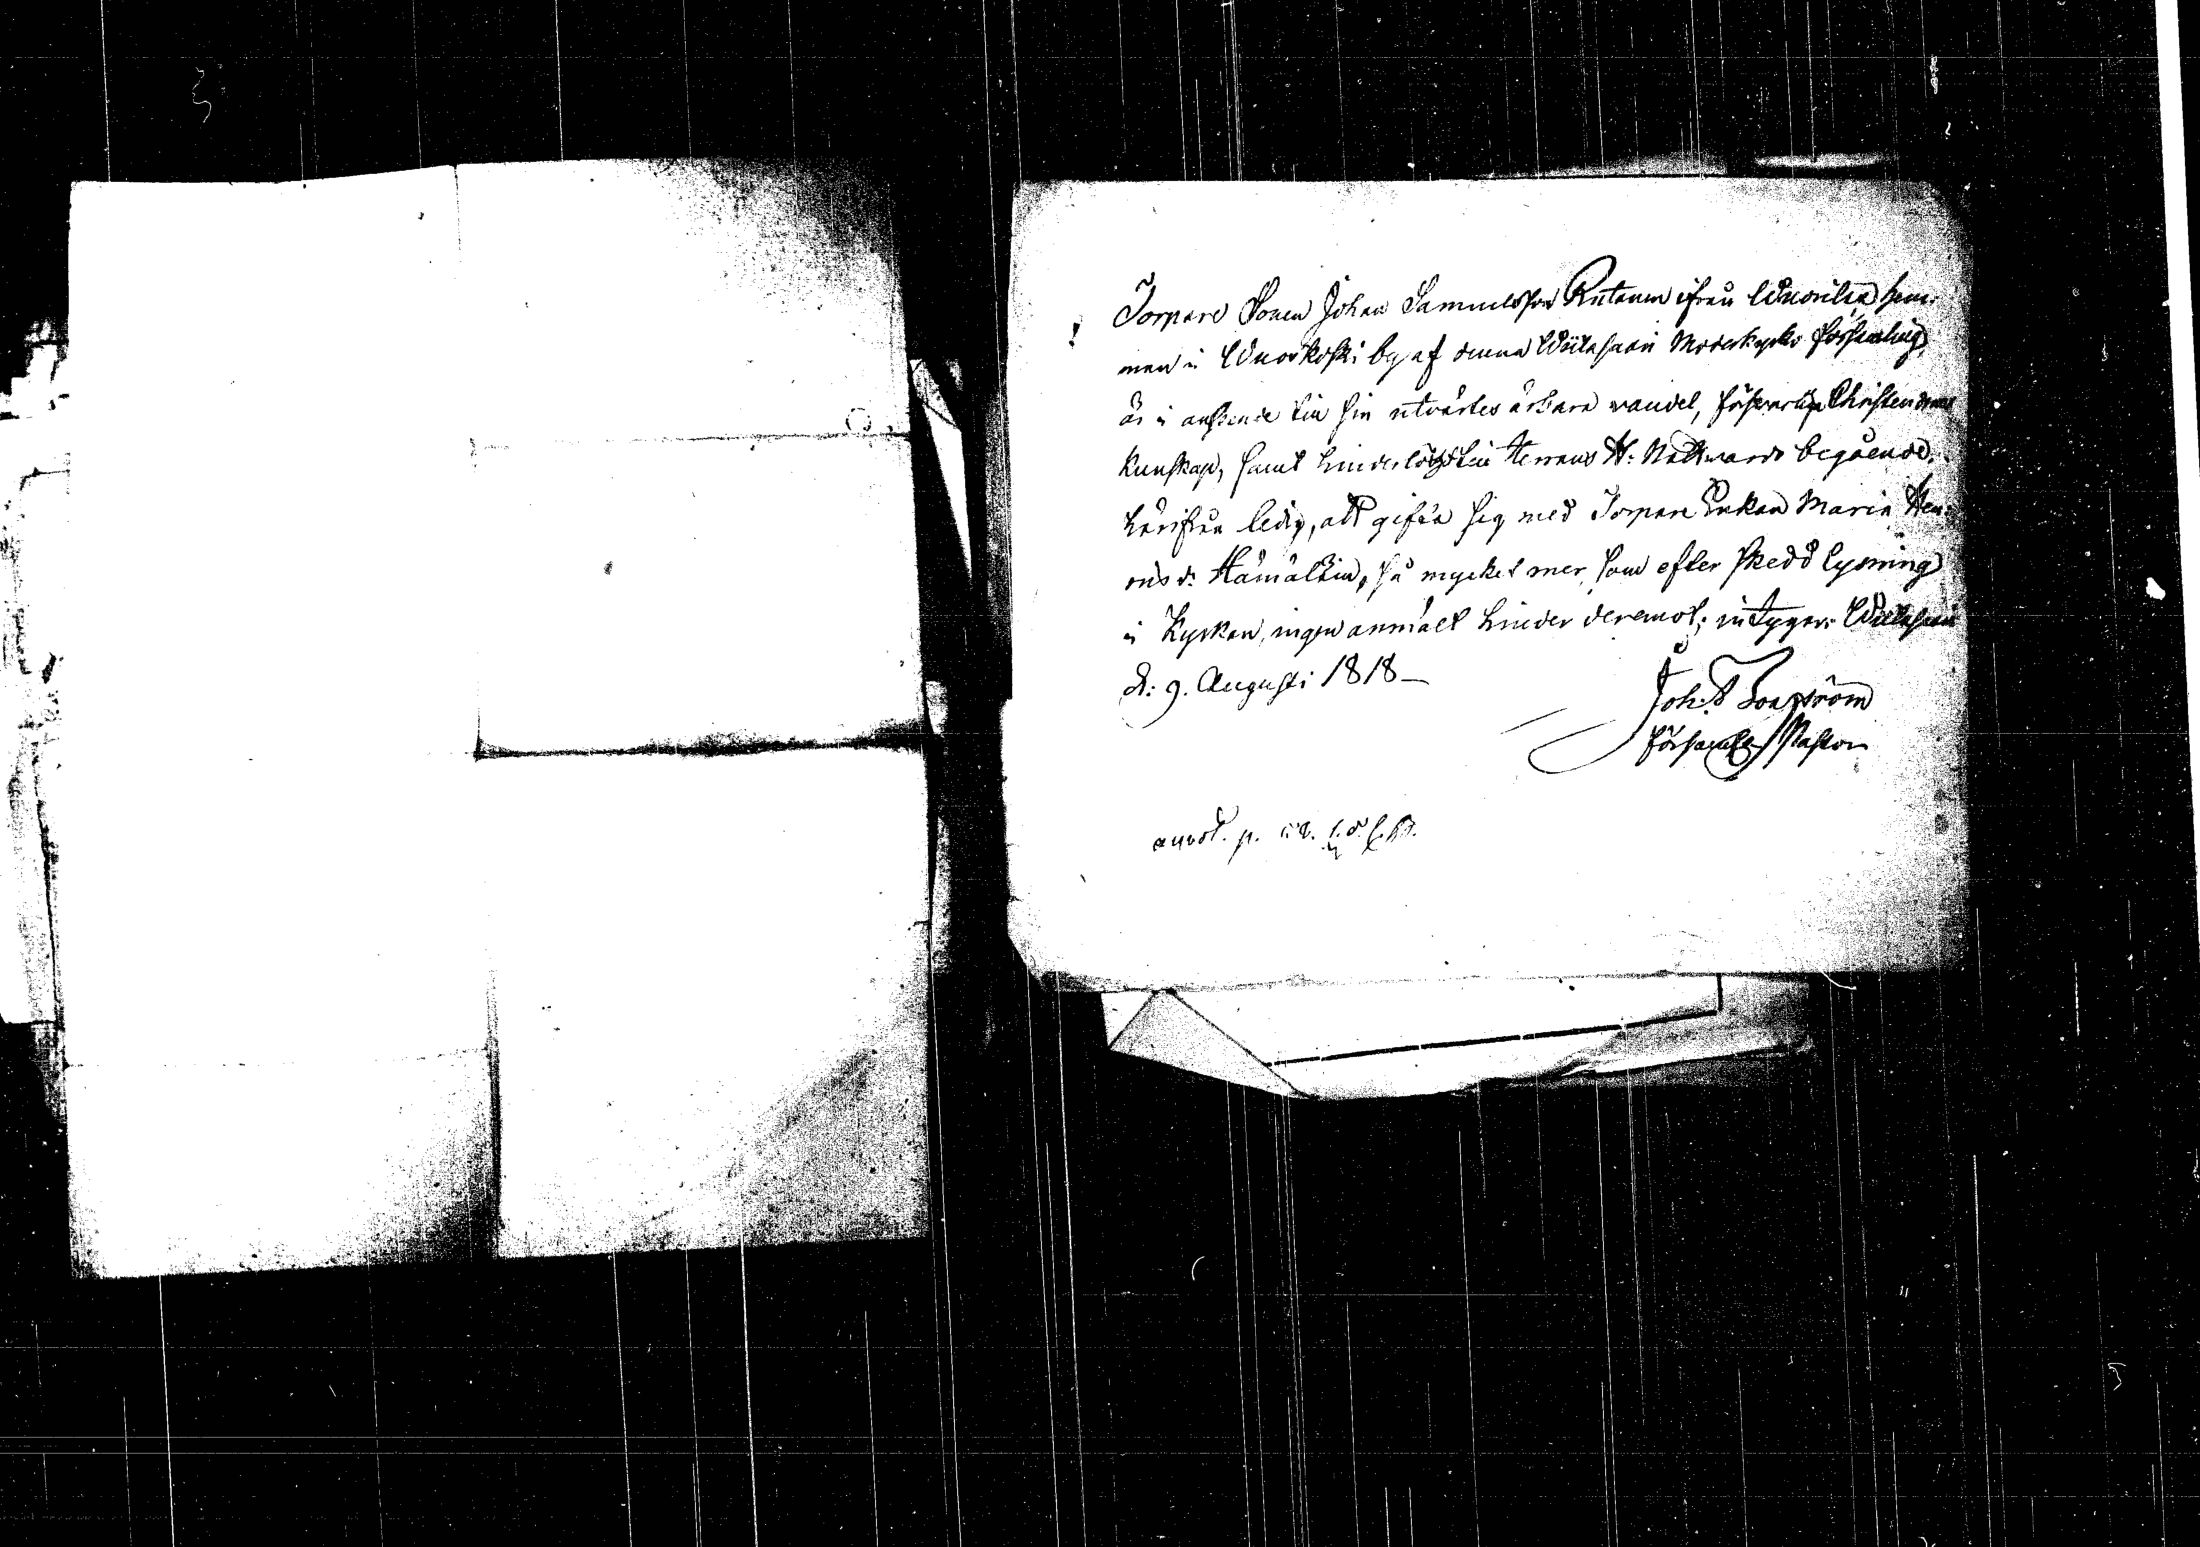 Torpare Sonen Johan Samuelsson Rutanen ifrån Wuorila hem-
man i Wuoskoski by af denna Wiitasaari Moderkyrko församling,
är i anseende till sin utvärtes ärbara wandel, försvarliga Christendoms
kunskap, samt hinderlöst till Herrans H: Nattward begående,
härifrån ledig, att gifta sig med Torpare Enkan Maria Hen-
ricsd: Hämäläin, så mycket mer, som efter skedd lysning
i Kyrkan, ingen anmält hinder deremot; intygar: Wiitasaari
d: 9. Augusti 1818_
Joh:
Församl: Pastor
annot. p.